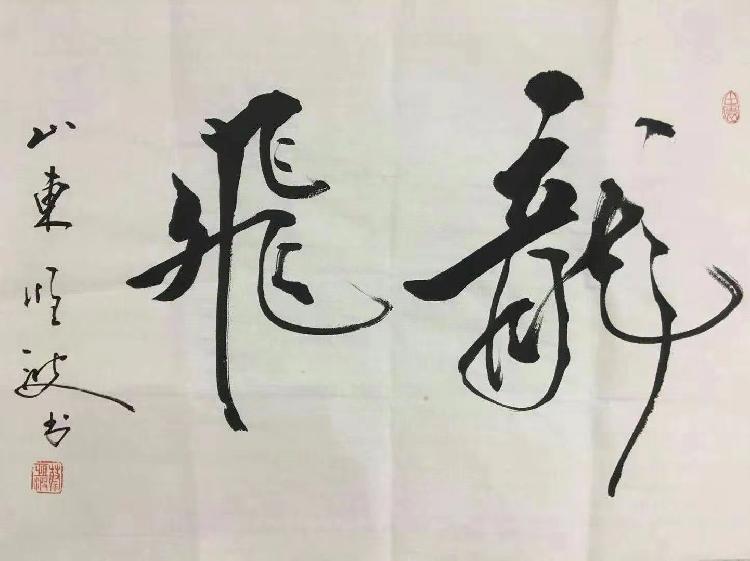 龍飛
山東順波书